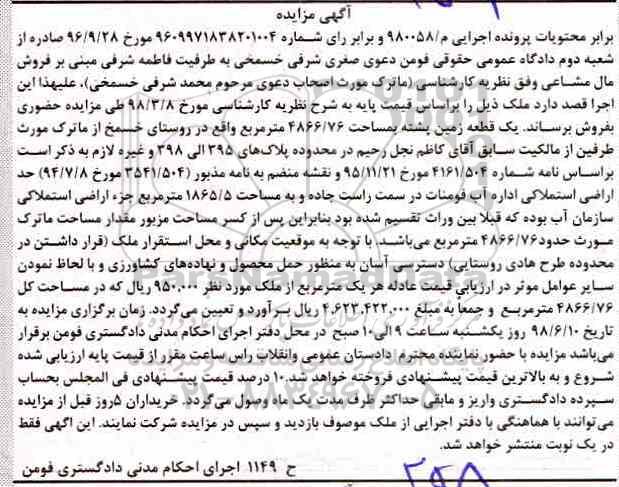 آگهی مزایده
برابر محتویات پرونده اجرایی م/۹۸۰۰۵۸ و برابر رای شماره ۹۶۰۹۹۷۱۸۳۸۲۰۱۰۰۴ مورخ ۹۶/۹/۲۸ صادره از
شعبه دوم دادگاه عمومی حقوقی فومن دعوی صغری شرفی خسمخی به طرفیت فاطمه شرفی مبنی بر فروش
مال مشاعی وفق نظریه کارشناسی (ماترک مورث اصحاب دعوی مرحوم محمد شرفی خسمخی)، علیهذا این
اجرا قصد دارد ملک ذیل را براساس قیمت پایه به شرح نظریه کارشناسی مورخ ۹۸/۳/۸ طی مزایده حضوری
بفروش برساند. یک قطعه زمین پشته بمساحت ۴۸۶۶/۷۶ مترمربع واقع در روستای خسمخ از ماترک مورث
طرفین از مالکیت سابق آقای کاظم نجل رحیم در محدوده پلاک‌های ۳۹۵ الی ۳۹۸ و غیره لازم به ذکر است
براساس نامه شماره ۴۱۶۱/۵۰۴ مورخ ۹۵/۱۱/۲۱ و نقشه منضم به نامه مذبور (۳۵۴۱/۵۰۴ مورخ ۹۴/۷/۸) حد
اراضی استملاکی اداره آب فومنات در سمت راست جاده و به مساحت ۱۸۶۵/۵ مترمربع جزء اراضی استملاکی
سازمان آب بوده که قبلا بین وراث تقسیم شده بود بنابراین پس از کسر مساحت مزبور مقدار مساحت ماترک
مورث حدود ۴۸۶۶/۷۶ مترمربع می‌باشد. با توجه به موقعیت مکانی و محل استقرار ملک (قرار داشتن در
محدوده طرح هادی روستایی) دسترسی آسان به منظور حمل محصول و نهاده‌های کشاورزی و با لحاظ نمودن
سایر عوامل موثر در ارزیابی قیمت عادله هر یک مترمربع از ملک مورد نظر ۹۵۰,۰۰۰ ریال که در مساحت کل
۴۸۶۶/۷۶ مترمربع و جمعاً به مبلغ ۴,۶۲۳,۴۲۲,۰۰۰ ریال برآورد و تعیین می‌گردد. زمان برگزاری مزایده به
تاریخ ۹۸/۶/۱۰ روز یکشنبه ساعت ۹ الی ۱۰ صبح در محل دفتر اجرای احکام مدنی دادگستری فومن برقرار
می‌باشد مزایده با حضور نماینده محترم دادستان عمومی وانقلاب راس ساعت مقرر از قیمت پایه ارزیابی شده
شروع و به بالاترین قیمت پیشنهادی فروخته خواهد شد. ۱۰ درصد قیمت پیشنهادی فی المجلس بحساب
سپرده دادگستری واریز و مابقی حداکثر ظرف مدت یک ماه وصول می‌گردد. خریداران ۵روز قبل از مزایده
می‌توانند با هماهنگی با دفتر اجرایی از ملک موصوف بازدید و سپس در مزایده شرکت نمایند. این آگهی فقط
در یک نوبت منتشر خواهد شد.
ح ۱۱۴۹ اجرای احکام مدنی دادگستری فومن